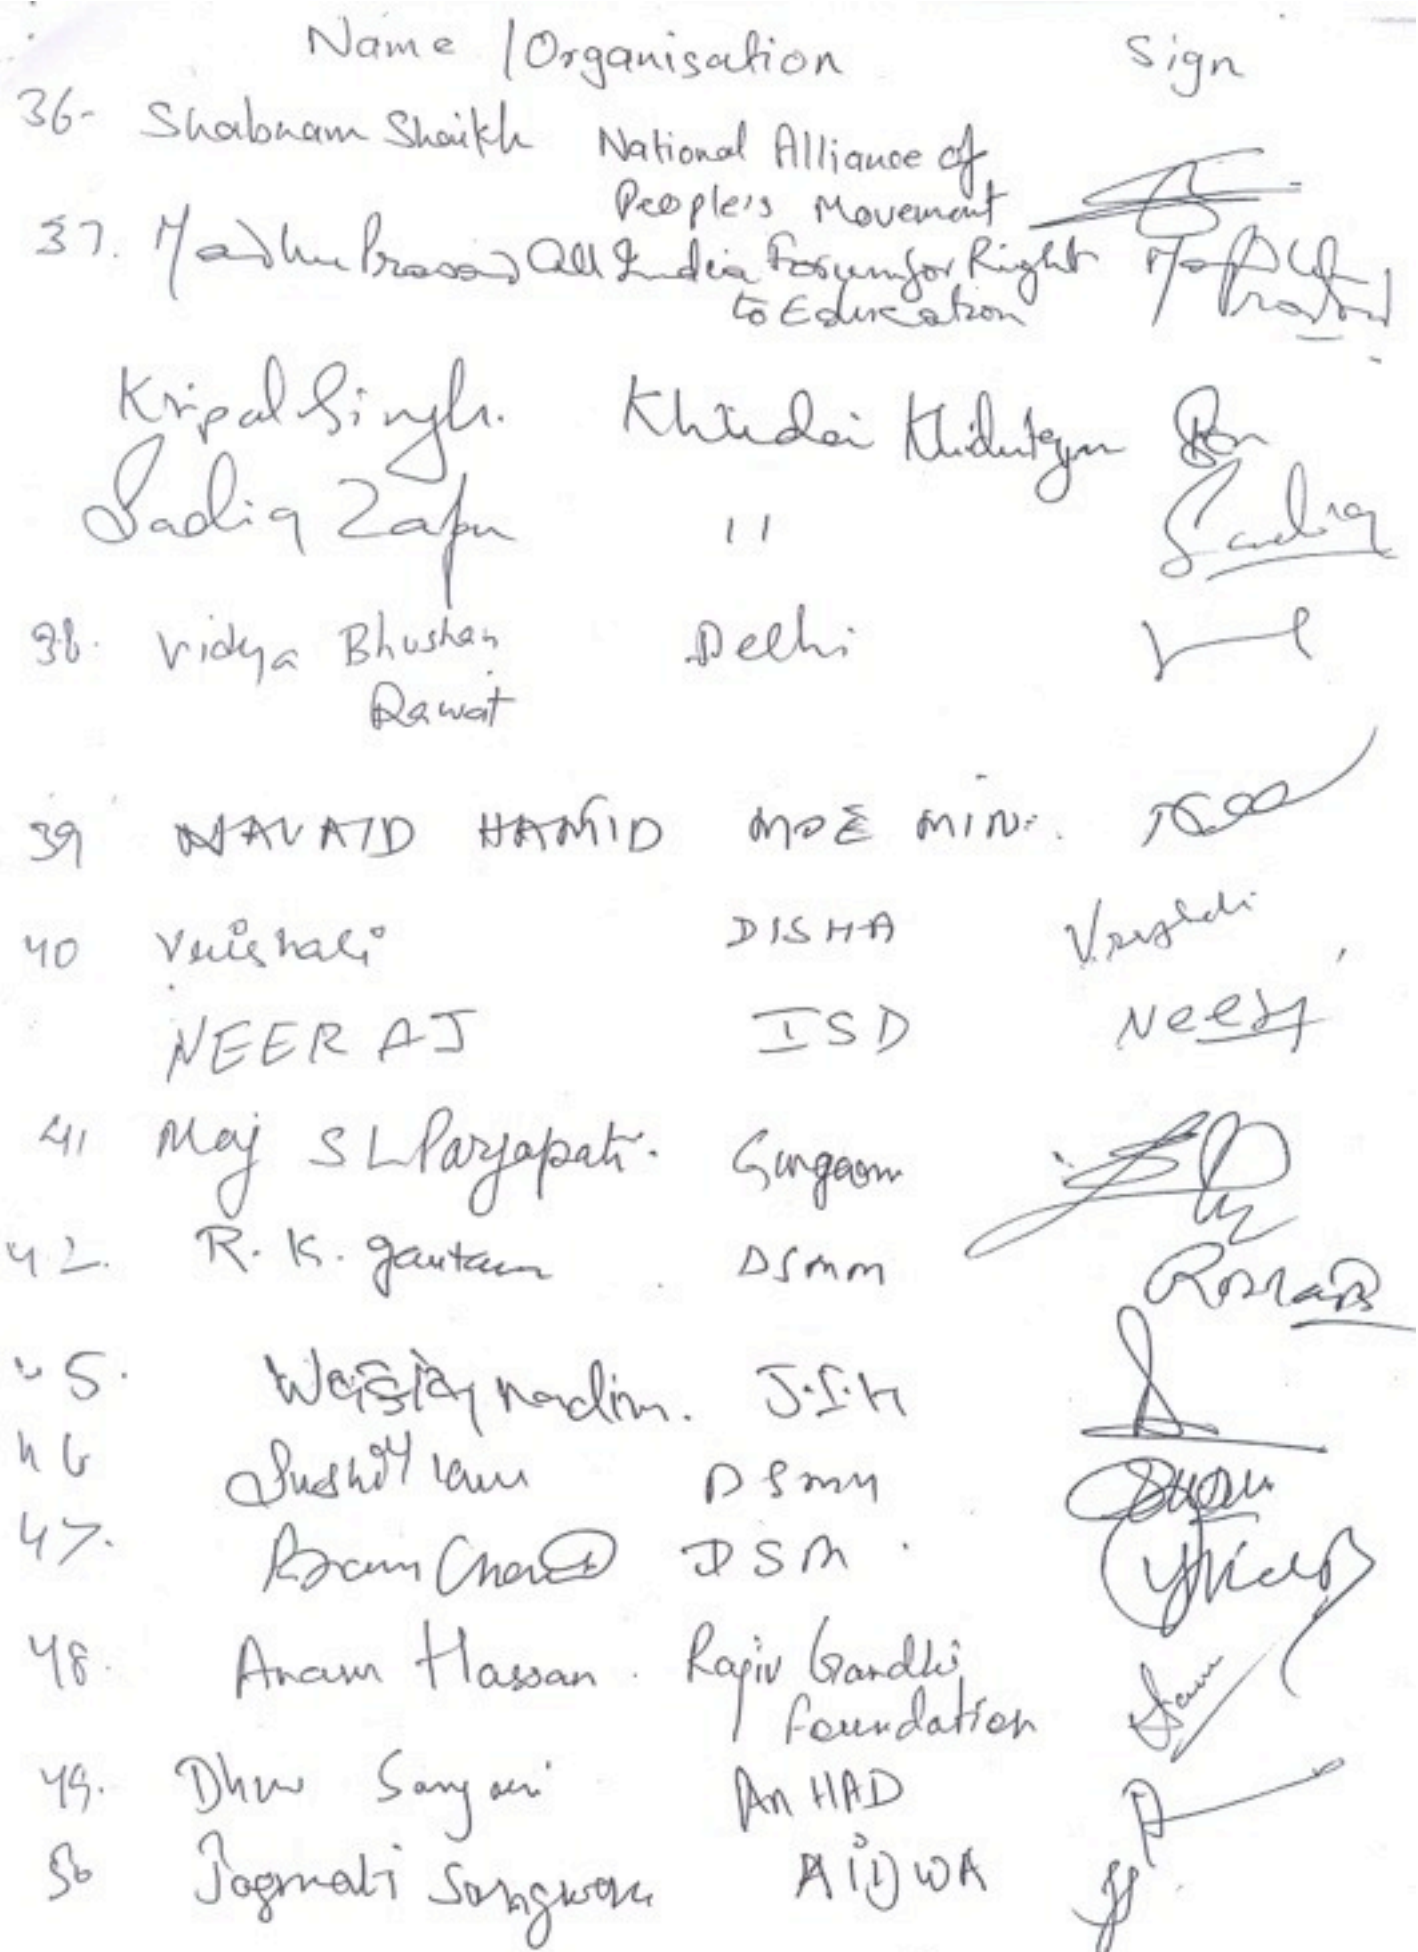 Name / Organisation Sign
36- Shabnam Shaikh National Alliance of
People's Movement
37. Madhu Prasad All India Forum for Right
to Education
Kripal Singh. Khudai Khidmatgar
Sadiq Zafar " Sadiq
38. Vidya Bhushan Delhi
Rawat
39 NAVAID HAMID MOEMIN.
40 Vaishali DISHA Vaishali
NEERAJ ISD Neeraj
41 Maj S L Parjapati. Gurgaon
42. R. K. gautam DSMM
45. nadim. J.I.H
46 Sushil DSMM
47. Ram Chand DSM
48. Anam Hassan. Rajiv Gandhi
Foundation
49. Dhruv Sangari AnHAD
50 Jagmati Sangwan AIDWA